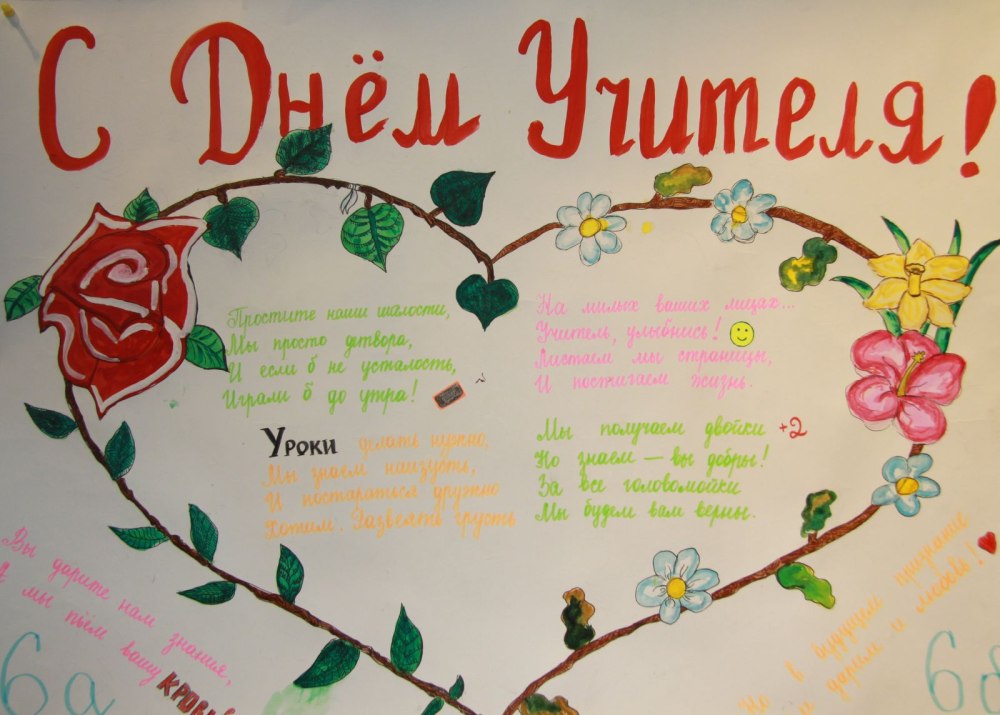 С Днём Учителя!
Простите наши шалости,
Мы просто детвора,
И если б не усталость,
Играли б до утра!
На милых ваших лицах...
Учитель, улыбнись!
Листаем мы страницы,
И постигаем жизнь.
Уроки делать нужно,
Мы знаем наизусть,
И постараться дружно
Хотим. Развеять грусть
Мы получаем двойки +2
Но знаем — вы добры!
За все головомойки
Мы будем вам верны.
Вы дарите нам знания,
А мы пьём вашу КРОВЬ
Но в будущем признание
и дарим и любовь!
6а
6в